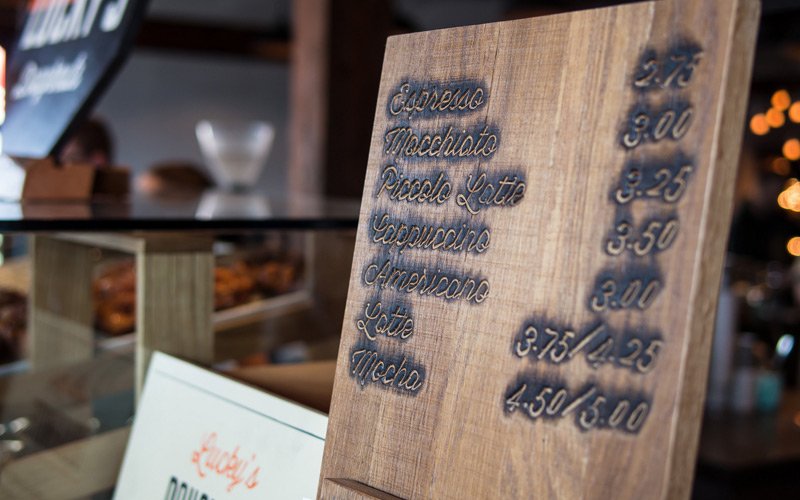 LUCKY'S
Espresso 2.75
Macchiato 3.00
Piccolo Latte 3.25
Cappuccino 3.50
Americano 3.00
Latte 3.75/4.25
Mocha 4.50/5.00
Lucky's